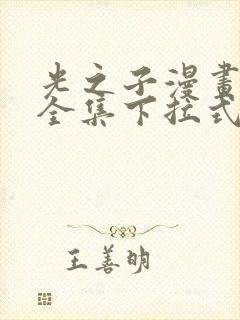 光之子漫畫
全集下拉式
王善明